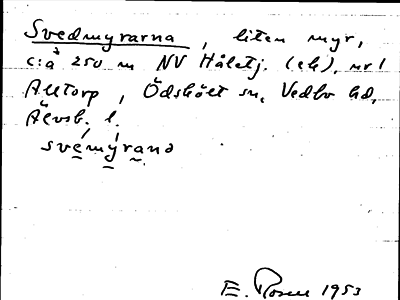 Svedmyrarna, liten myr,
c:a 250 m NV Håletj. (ek), nr 1
Alltorp, Ödskölt sn, Vedbo hd,
Älvsb. l.
svémýrana
E. Rosen 1953